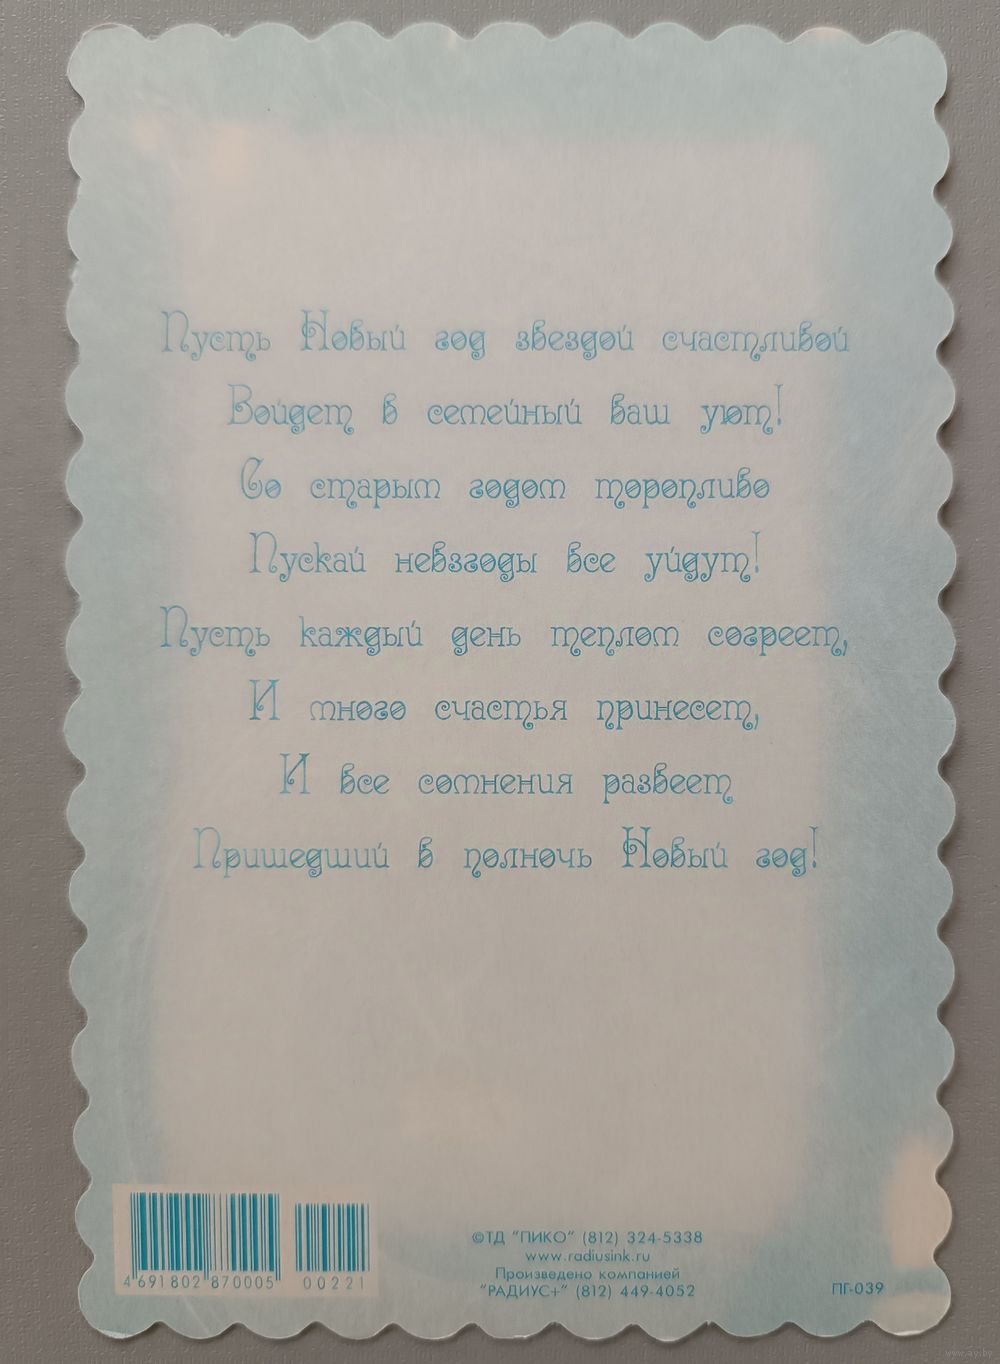 Пусть Новый год звездой счастливой
Войдет в семейный ваш уют!
Со старым годом торопливо
Пускай невзгоды все уйдут!
Пусть каждый день теплом согреет,
И много счастья принесет,
И все сомнения развеет
Пришедший в полночь Новый год!
4 691802 870005 00221
©ТД "ПИКО" (812) 324-5338
www.radiusink.ru
Произведено компанией
"РАДИУС+" (812) 449-4052
ПГ-039
www.ay.by